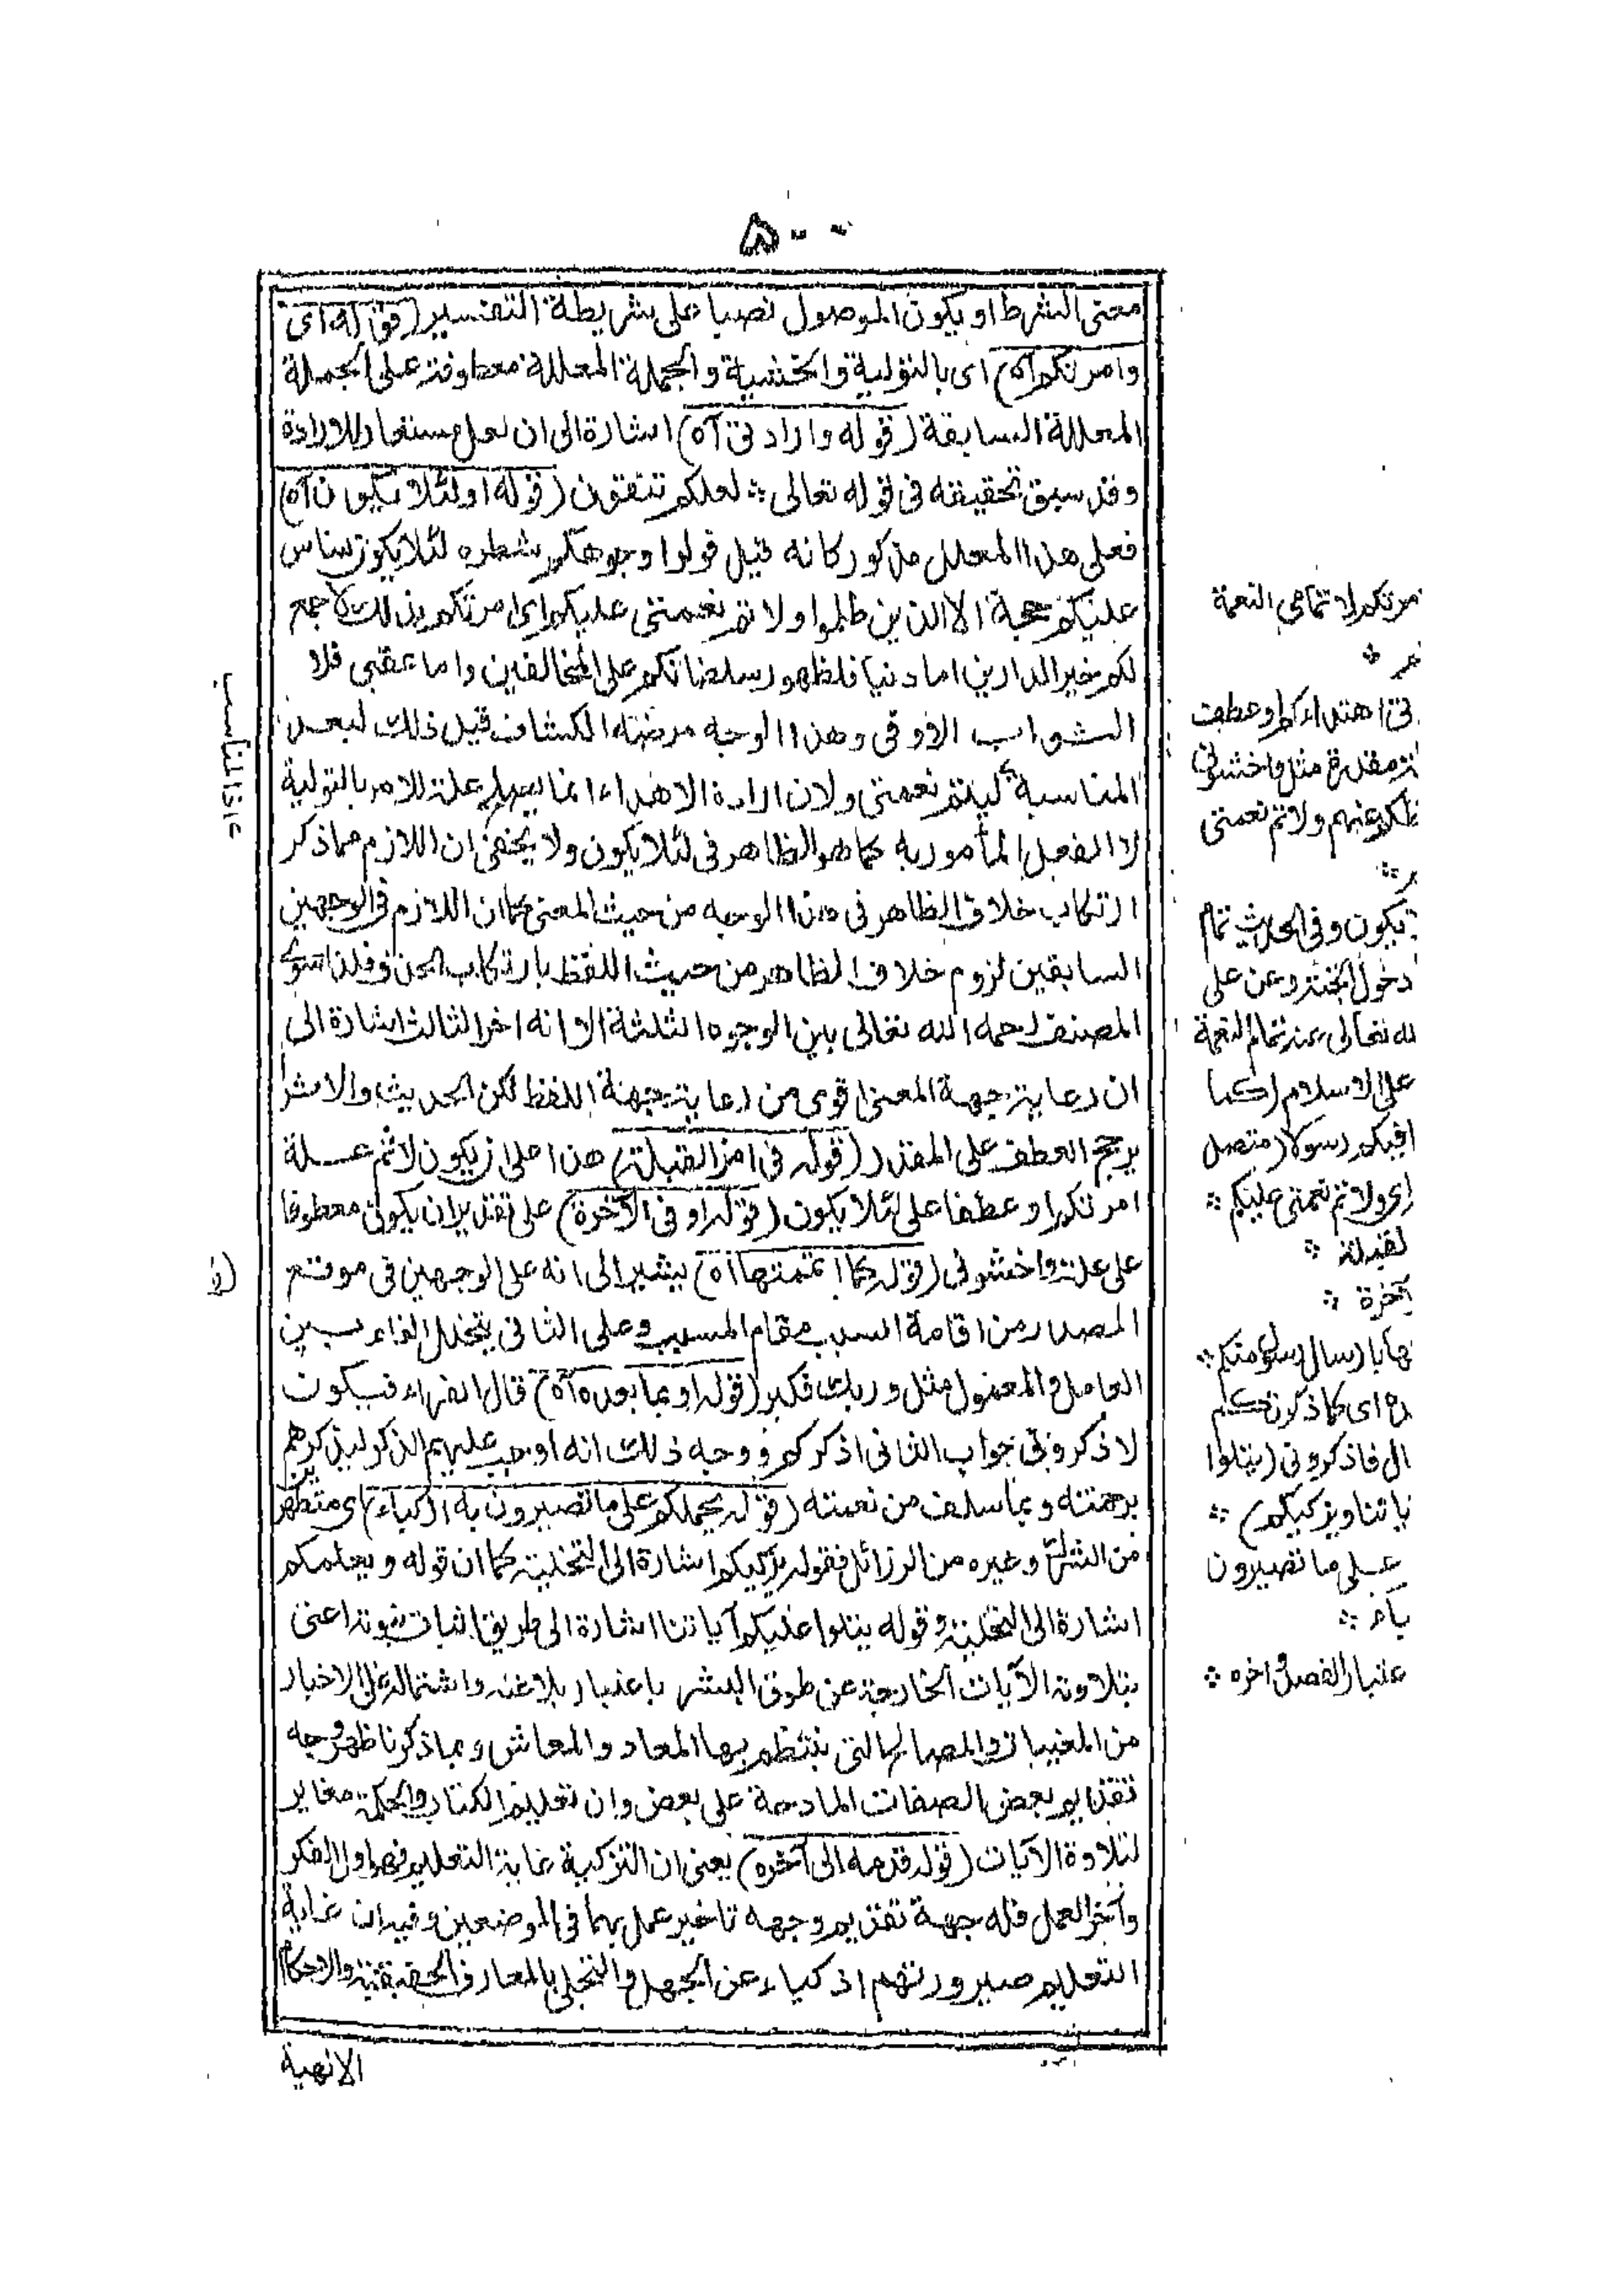 ٥٠٠
معنى الشرط او يكون الموصول نصبا على شريطة التفسير (قوله اى
وامرتكم آه) اى بالتولية والخشية والجملة المعللة معطوفة على الجملة
المعللة السابقة (قوله وارادتى آه) اشارة الى ان لعل مستعار للارادة
وقد سبق تحقيقه فى قوله تعالى ⁘ لعلكم تتقون (قوله او لئلا يكون آه)
فعلى هذا المعلل مذكور كانه قيل فولوا وجوهكم شطره لئلا يكون للناس
عليكم حجة الا الذين ظلموا ولاتم نعمتى عليكم اى امرتكم بذلك لاجمع
لكم خير الدارين اما دنيا فلظهور سلطانكم على المخالفين واما عقبى فلا
الثواب الاوفى وهذا الوجه مرضته الكشاف قيل ذلك لبعد
المناسبة ليتم نعمتى ولان ارادة الاهتداء انما يصلح علة للامر بالتولية
لا الفعل المأمور به كما هو الظاهر فى لئلا يكون ولا يخفى ان اللازم مما ذكر
ارتكاب خلاف الظاهر فى هذا الوجه من حيث المعنى كما ان اللازم فى الوجهين
السابقين لزوم خلاف الظاهر من حيث اللفظ بارتكاب الحذف فلذا سوى
المصنف رحمه الله تعالى بين الوجوه الثلثة الا انه اخر الثالث اشارة الى
ان رعاية جهة المعنى اقوى من رعاية جهة اللفظ لكن الحديث والاثر
يرجح العطف على المقدر (قوله فى امر القبلة) هذا على ان يكون لاتم عـلة
امرتكم او عطفا على لئلا يكون (قوله او فى الآخرة) على تقدير ان يكون معطوفا
على علة واخشونى (قوله كما اتممتها آه) يشير الى انه على الوجهين فى موقع
المصدر من اقامة السبب مقام المسبب وعلى الثانى يتخلل الفاء بـين
العامل والمعمول مثل وربك فكبر (قوله او بما بعده آه) قال الفراء فيكون
لاذكرونى جواب الثانى اذكركم ووجه ذلك انه اوجب عليهم الذكر ليذكرهم
برحمته وبما سلف من نعمته (قوله يحملكم على ما تصيرون به ازكياء) اى متطهرين
من الشرك وغيره من الرزائل فقوله يزكيكم اشارة الى التخلية كما ان قوله ويعلمكم
اشارة الى التحلية وقوله يتلوا عليكم آياتنا اشارة الى طريق اثبات نبوته اعنى
بتلاوة الآيات الخارجة عن طوق البشر باعتبار بلاغته واشتماله على الاخبار
من المغيبات والمصالح التى ينتظم بها المعاد والمعاش وبما ذكرنا ظهر وجه
تقديم بعض الصفات المادحة على بعض وان تعليم الكتاب والحكمة مغاير
لتلاوة الآيات (قوله قدمه الى آخره) يعنى ان التزكية غاية التعليم فهو اول الفكر
وآخر العمل فله جهة تقديم وجهه تاخير عمل بهما فى الموضعين وفيه ان غاية
التعليم صيرورتهم ازكياء عن الجهل والتحلى بالمعارف الحقيقية والاحكام
الالهية
مرتكم لاتمامى النعمة
تى اهتداءكم او عطف
مقدرة مثل واخشونى
عنهم ولاتم نعمتى
يكون وفى الحديث تمام
دخول الجنة وعن على
له تعالى عنه تمام النعمة
على الاسلام (كما
فيكم رسولا) متصل
اى ولاتم نعمتى عليكم ⁘
لقبلة ⁘
آخرة ⁘
بارسال رسول منكم ⁘
اى كما ذكرتكم
فاذكرونى (يتلوا
ياتنا ويزكيكم) ⁘
عـلى ما تصيرون
ياء ⁘
عتبار الفصل واخره ⁘